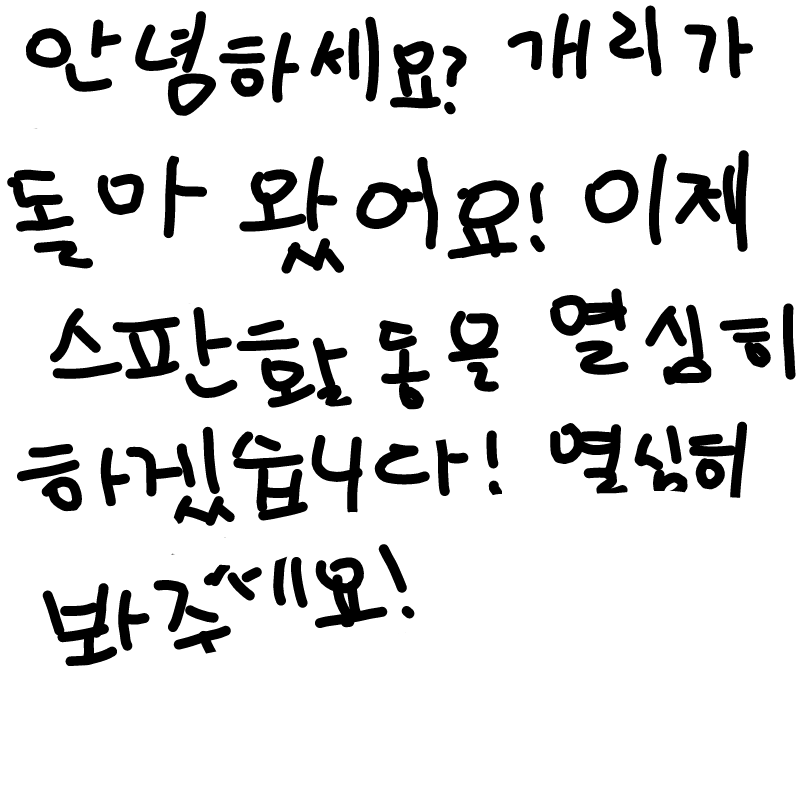 안녕하세요? 개리가
돌아 왔어요! 이제
스판활 동을 열심히
하겠습니다! 열심히
봐주세요!